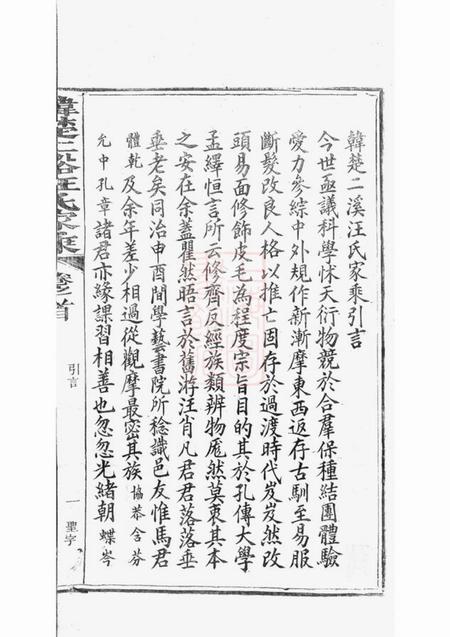 韓楚二溪汪氏家乘引言
今世亟議科學怵天衍物競於合羣保種結團體驗
愛力參綜中外規作新漸摩東西返存古馴至易服
斷髮改良人格以推亡固存於過渡時代岌岌然改
頭易面修飾皮毛為程度宗旨目的其於孔傳大學
孟繹恒言所云修齊反經族類辨物厖然莫衷其本
之安在余蓋瞿然晤言於舊游汪肖凡君君落落垂
垂老矣同治申酉間學藝書院所稔識邑友惟馬君
體乾及余年差少相過從觀摩最密其族協恭含芬
允中孔章諸君亦緣課習相善也忽忽光緒朝蝶岑
韓楚二溪汪氏家乘
卷之首
引言
一
聖字